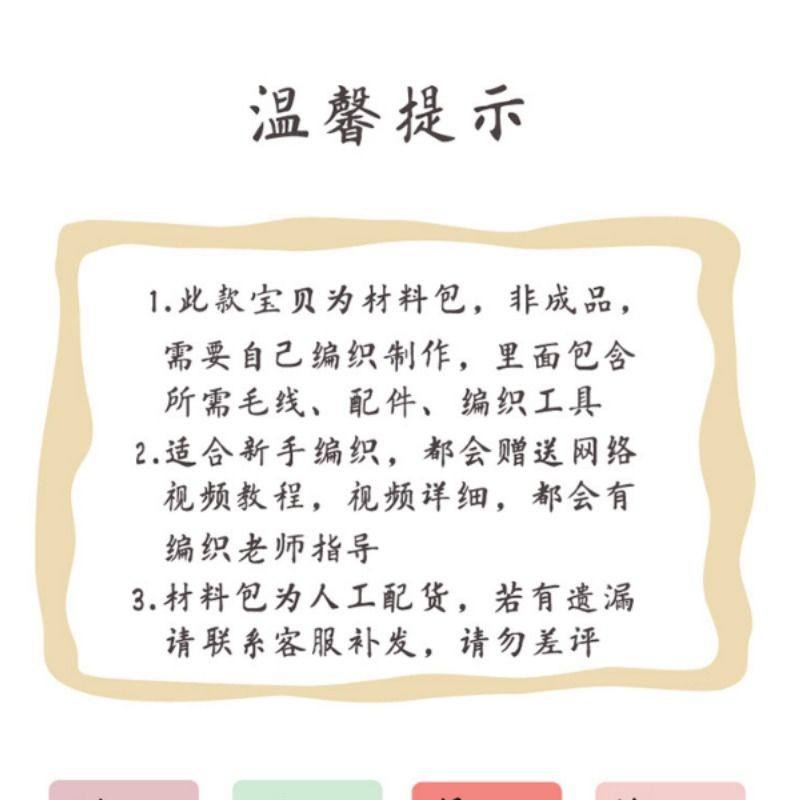 温馨提示
1.此款宝贝为材料包，非成品，
需要自己编织制作，里面包含
所需毛线、配件、编织工具
2.适合新手编织，都会赠送网络
视频教程，视频详细，都会有
编织老师指导
3.材料包为人工配货，若有遗漏
请联系客服补发，请勿差评